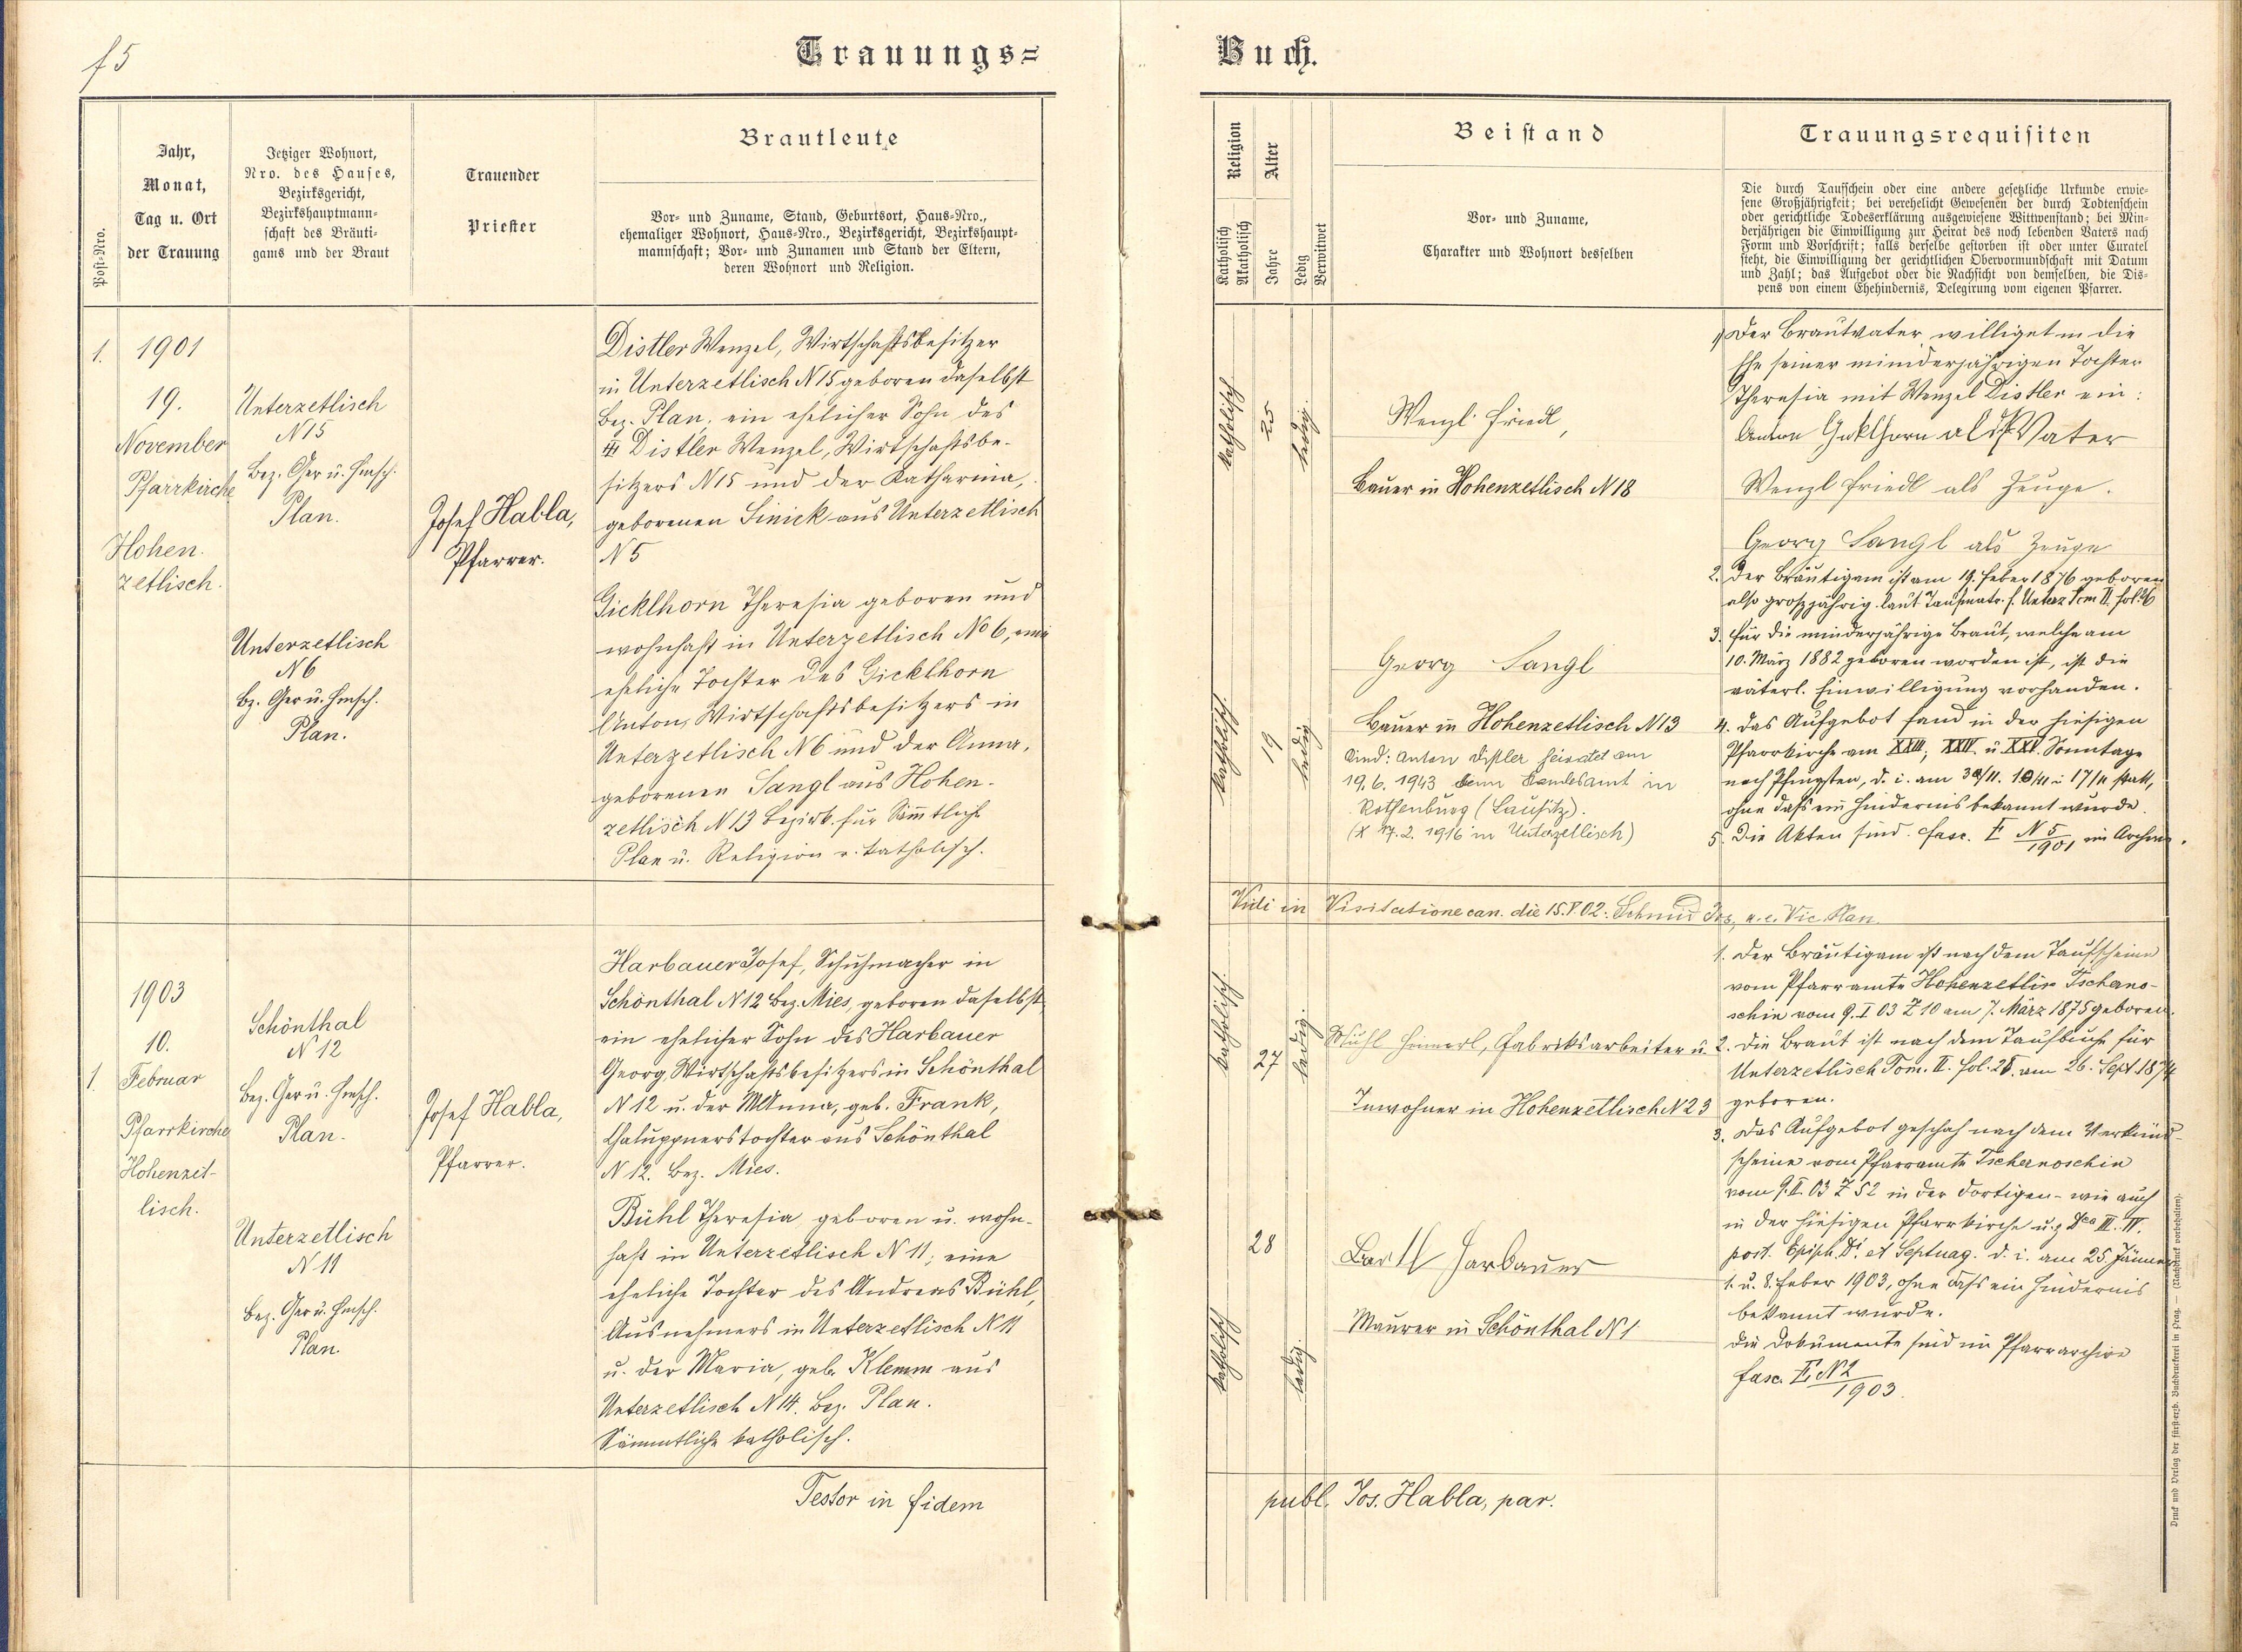 f5
Trauungs=
Buch.
Post-Nro.
Jahr,
Monat,
Tag u. Ort
der Trauung
Jetziger Wohnort,
Nro. des Hauses,
Bezirksgericht,
Bezirkshauptmann-
schaft des Bräuti-
gams und der Braut
Trauender
Priester
Brautleute
Vor- und Zuname, Stand, Geburtsort, Haus-Nro.,
ehemaliger Wohnort, Haus-Nro., Bezirksgericht, Bezirkshaupt-
mannschaft; Vor- und Zunamen und Stand der Eltern,
deren Wohnort und Religion.
Religion
Katholisch
Akatholisch
Alter
Jahre
Ledig
Verwitwet
Beistand
Vor- und Zuname,
Charakter und Wohnort desselben
Trauungsrequisiten
Die durch Taufschein oder eine andere gesetzliche Urkunde erwie-
sene Großjährigkeit; bei verehelicht Gewesenen der durch Todtenschein
oder gerichtliche Todeserklärung ausgewiesene Wittwenstand; bei Min-
derjährigen die Einwilligung zur Heirat des noch lebenden Vaters nach
Form und Vorschrift; falls derselbe gestorben ist oder unter Curatel
steht, die Einwilligung der gerichtlichen Obervormundschaft mit Datum
und Zahl; das Aufgebot oder die Nachsicht von demselben, die Dis-
pens von einem Ehehindernis, Delegirung vom eigenen Pfarrer.
1.
1901
19.
November
Pfarrkirche
Hohen.
zetlisch.
Unterzetlisch
N 15
Bez. Ger u. Hmsch.
Plan.
Unterzetlisch
N 6
Bz. Ger u. Hmsch.
Plan.
Josef Habla,
Pfarrer.
Distler Wenzel, Wirtschaftsbesitzer
in Unterzetlisch N 15 geboren daselbst
Bez. Plan, ein ehelicher Sohn des
Distler Wenzel, Wirtschaftsbe-
sitzers N 15 und der Katharina,
geborenen Sinick aus Unterzetlisch
N 5
Gicklhorn Theresia geboren und
wohnhaft in Unterzetlisch No 6, eine
eheliche Tochter des Gicklhorn
Anton, Wirtschaftsbesitzers in
Unterzetlisch N 6 und der Anna,
geborenen Sangl aus Hohen-
zetlisch N 13 Bezirk für Sämtliche
Plan u. Religion r. katholisch.
katholisch
25
ledig.
katholisch.
19
ledig
Wenzl Friedl,
Bauer in Hohenzetlisch N 18
Georg Sangl
Bauer in Hohenzetlisch N 13
Kind: Anton Distler heiratet am
19.6.1943 beim Standesamt in
Rothenburg (Lausitz).
(* 17.2.1916 in Unterzetlisch)
1) Der Brautvater williget in die
Ehe seiner minderjährigen Tochter
Theresia mit Wenzel Distler ein:
Anton Gicklhorn als Vater
Wenzl Friedl als Zeuge.
Georg Sangl als Zeuge
2. Der Bräutigam ist am 19. Feber 1876 geboren
also großjährig laut Taufmatr. f. Unterz Tom II. fol. 26
3. Für die minderjährige Braut, welche am
10. März 1882 geboren worden ist, ist die
väterl. Einwilligung vorhanden.
4. Das Aufgebot fand in der hiesigen
Pfarrkirche am XXIII, XXIV u XXV. Sonntage
nach Pfingsten, d. i. am 10/11 u 17/11 statt,
ohne daß ein Hindernis bekannt wurde.
5. Die Akten sind fasc. F N 5/1901 im Archiv.
Vidi in Visitatione can. die 15.V.02: Schmid Jos, a.e. Vic. Plan.
1.
1903
10.
Februar
Pfarrkirche
Hohenzet-
lisch.
Schönthal
N 12
Bez. Ger u. Hmsch.
Plan.
Unterzetlisch
N 11
Bez. Ger u. Hmsch.
Plan.
Josef Habla,
Pfarrer.
Harbauer Josef, Schuhmacher in
Schönthal N 12 Bez. Mies, geboren daselbst,
ein ehelicher Sohn des Harbauer
Georg Wirtschaftsbesitzers in Schönthal
N 12 u. der M Anna, geb. Frank,
Chaluppnerstochter aus Schönthal
N 12. Bez. Mies.
Bühl Theresia geboren u. wohn-
haft in Unterzetlisch N 11; eine
eheliche Tochter des Andreas Bühl,
Ausnehmers in Unterzetlisch N 11
u. der Maria, geb. Klemm aus
Unterzetlisch N 14. Bez. Plan.
Sämmtliche katholisch.
katholisch.
27
ledig.
28
katholisch
ledig.
Fabriksarbeiter u.
Inwohner in Hohenzetlisch N 23
Bartl Harbauer
Maurer in Schönthal N 1
1. Der Bräutigam ist nach dem Taufscheine
vom Pfarramte Tscherno-
schin vom 9. I 03 Z 10 am 7. März 1875 geboren.
2. Die Braut ist nach dem Taufbuche für
Unterzetlisch Tom. II. fol. 25. am 26. Sept 1874
geboren.
3. Das Aufgebot geschah nach dem Verkünd-
scheine vom Pfarramte Tschernoschin
vom 9. II. 03 Z 52 in der dortigen - wie auch
in der hiesigen Pfarrkirche u.z Dca III. IV.
post. Epiph. Di. et Septuag. d. i. am 25 Jänner
1. u. 8. Feber 1903, ohne daß ein Hindernis
bekannt wurde.
Die Dokumente sind im Pfarrarchive
fasc. F, N 2/1903.
Testor in fidem
publ. Jos. Habla, par.
Druck und Verlag der fürst-erzb. Buchdruckerei in Prag. — (Nachdruck vorbehalten).